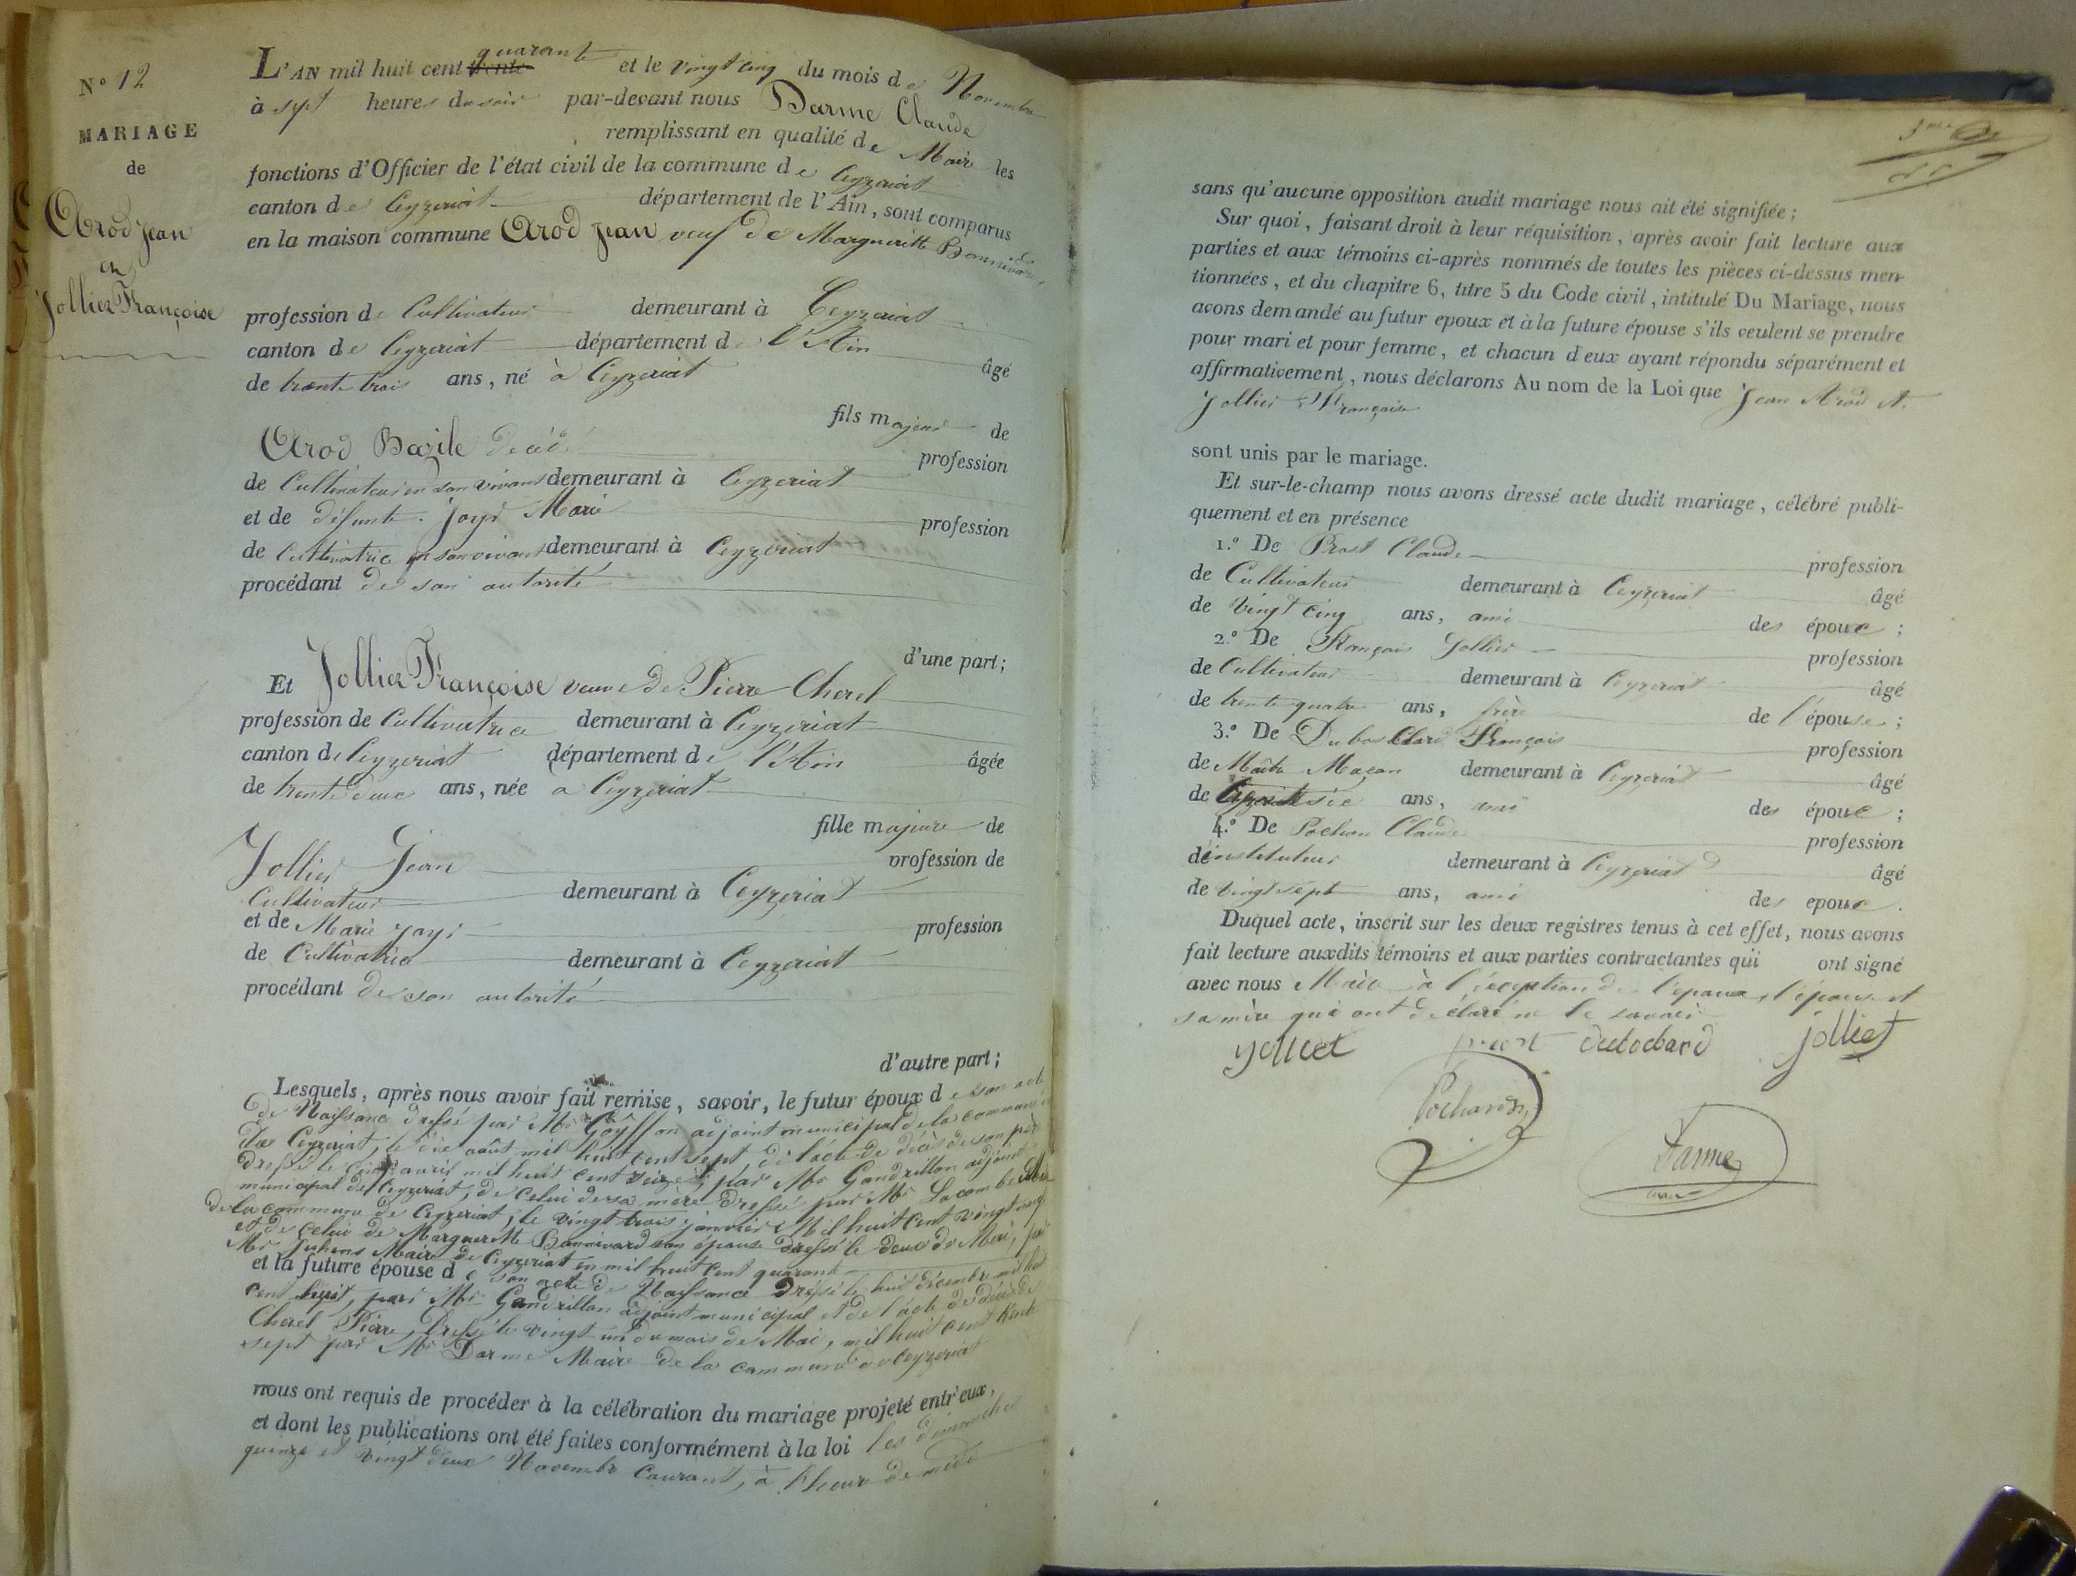 N° 12
MARIAGE
de
Arod Jean
et
Jollier Françoise
L'AN mil huit cent trente quarante et le vingt cinq du mois de Novembre
à sept heures du soir par-devant nous Darme Claude
remplissant en qualité de Maire les
fonctions d'Officier de l'état civil de la commune de Ceyzeriat
canton de Ceyzeriat département de l'Ain, sont comparus
en la maison commune Arod Jean veuf de Margueritte Bonnivard
profession de Cultivateur demeurant à Ceyzeriat
canton de Ceyzeriat département de l'Ain âgé
de trente trois ans, né à Ceyzeriat
fils majeur de
Arod Bazile décédé profession
de Cultivateur en son vivant demeurant à Ceyzeriat
et de défunte Joyr Marie profession
de Cultivatrice en son vivant demeurant à Ceyzeriat
procédant de son autorité
d'une part;
Et Jollier Françoise veuve de Pierre Cherel
profession de Cultivatrice demeurant à Ceyzeriat
canton de Ceyzeriat département de l'Ain âgée
de trente deux ans, née à Ceyzeriat
fille majeure de
Jollier Jean profession de
Cultivateur demeurant à Ceyzeriat
et de Marie Joyr profession
de Cultivatrice demeurant à Ceyzeriat
procédant de son autorité
d'autre part;
Lesquels, après nous avoir fait remise, savoir, le futur époux de son acte
de Naissance dressé par Mr Goyffon adjoint municipal de la commune
de Ceyzeriat, le dix août mil huit cent sept, de l'acte de décès de son père
dressé le avril mil huit cent seize, par Mr Gandrillon adjoint
municipal de Ceyzeriat, de celui de sa mère dressé par Mr Lacombe Maire
de la commune de Ceyzeriat, le vingt trois janvier mil huit cent vingt
et de celui de Margueritte Bonnivard son épouse dressé le deux de Mai, par
Mr Juhens Maire de Ceyzeriat en mil huit cent quarante
et la future épouse de son acte de Naissance dressé le huit décembre mil huit
cent huit, par Mr Gandrillon adjoint municipal et de l'acte de décès de
Cherel Pierre, dressé le vingt un du mois de Mai, mil huit cent trente
sept par Mr Darme Maire de la commune de Ceyzeriat
nous ont requis de procéder à la célébration du mariage projeté entr'eux,
et dont les publications ont été faites conformément à la loi les dimanches
quinze et vingt deux Novembre courant, à l'heure de midi
sans qu'aucune opposition audit mariage nous ait été signifiée;
Sur quoi, faisant droit à leur réquisition, après avoir fait lecture aux
parties et aux témoins ci-après nommés de toutes les pièces ci-dessus men-
tionnées, et du chapitre 6, titre 5 du Code civil, intitulé Du Mariage, nous
avons demandé au futur epoux et à la future épouse s'ils veulent se prendre
pour mari et pour femme, et chacun d'eux ayant répondu séparément et
affirmativement, nous déclarons Au nom de la Loi que Jean Arod et
Jollier Françoise
sont unis par le mariage.
Et sur-le-champ nous avons dressé acte dudit mariage, célébré publi-
quement et en présence
1.° De Prost Claude profession
de Cultivateur demeurant à Ceyzeriat âgé
de vingt cinq ans, ami des époux;
2.° De François Jollier profession
de Cultivateur demeurant à Ceyzeriat âgé
de trente quatre ans, frère de l'épouse;
3.° De Dubochard François profession
de Maître Maçon demeurant à Ceyzeriat âgé
de ans, ami des époux;
4.° De Pochon Claude profession
de instituteur demeurant à Ceyzeriat âgé
de vingt sept ans, ami des epoux.
Duquel acte, inscrit sur les deux registres tenus à cet effet, nous avons
fait lecture auxdits témoins et aux parties contractantes qui ont signé
avec nous Maire à l'éxception de l'epoux, l'épouse et
sa mère qui ont déclaré ne le savoir
jolliet prost dubochard jolliet
Pochon
Darme